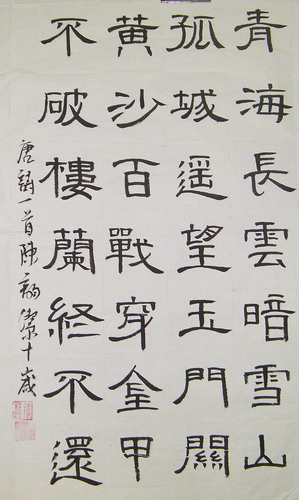 青海長雲暗雪山
孤城遥望玉門關
黄沙百戰穿金甲
不破樓蘭終不還
唐詩一首陳 十歲